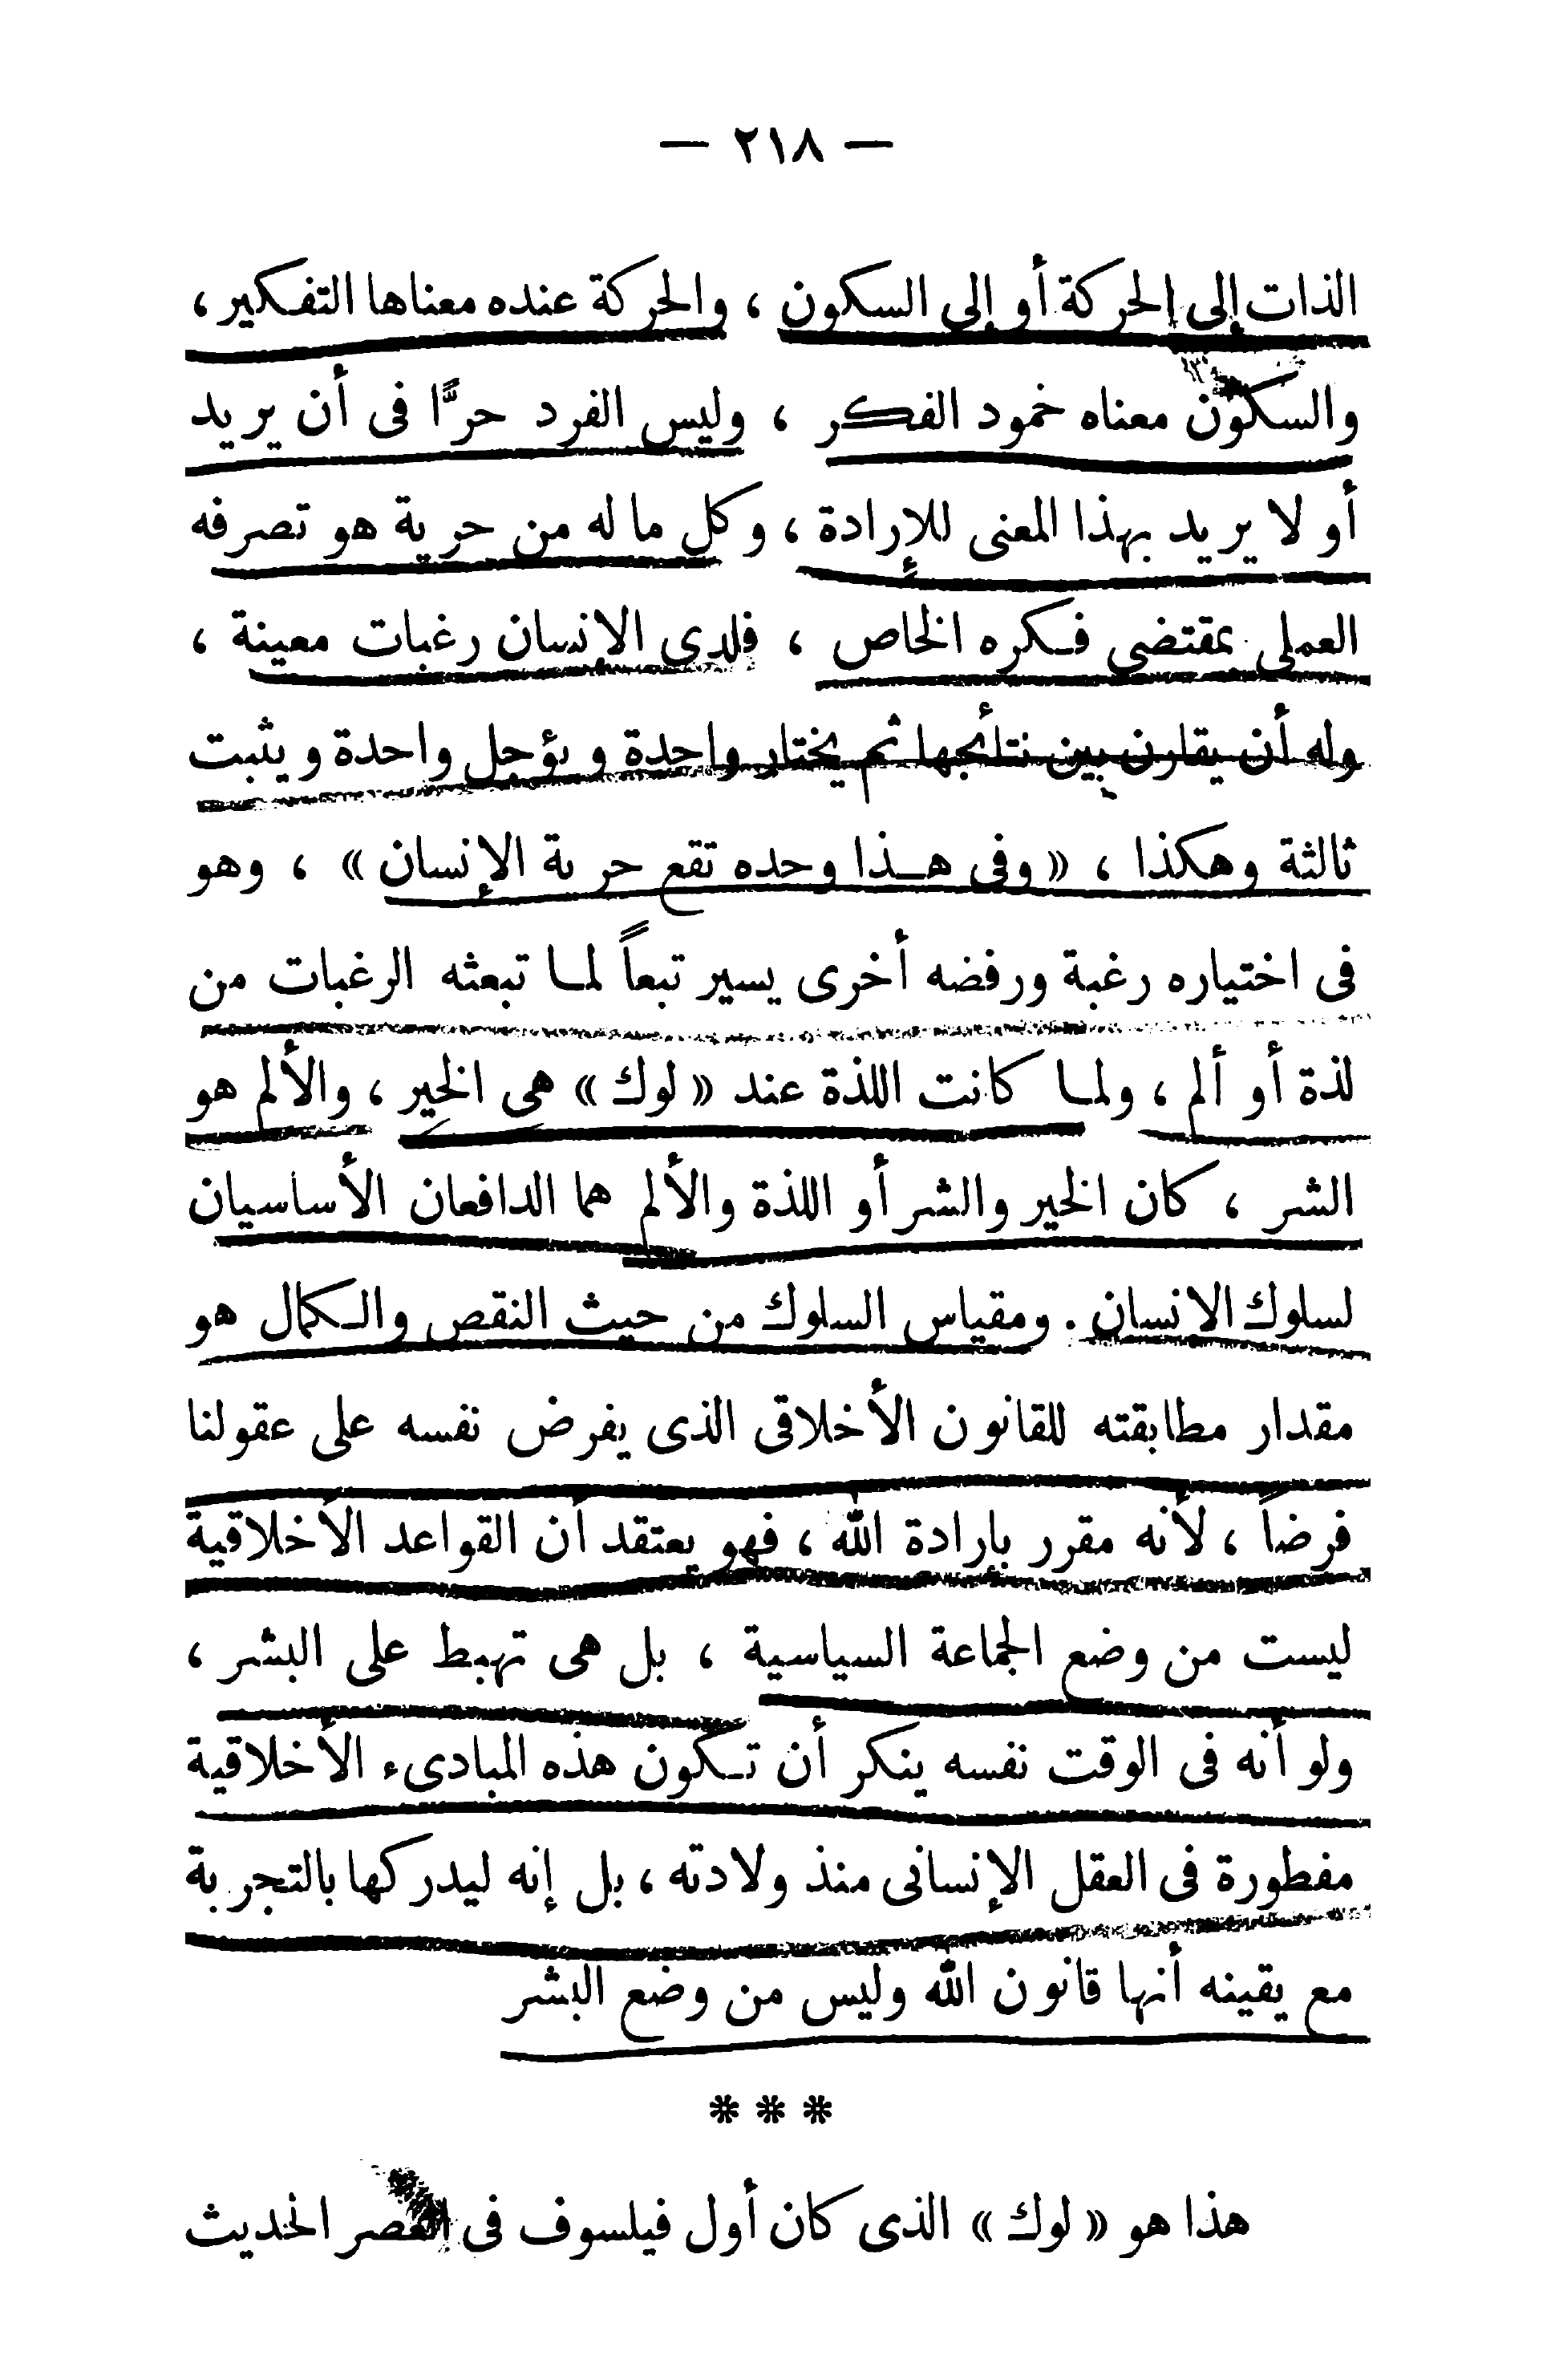 — ٢١٨ —
الذات إلى الحركة أو إلى السكون ، والحركة عنده معناها التفكير ،
والسكون معناه خمود الفكر ، وليس الفرد حرًّا فى أن يريد
أو لا يريد بهذا المعنى للإرادة ، وكل ما له من حرية هو تصرفه
العملى بمقتضى فكره الخاص ، فلدى الانسان رغبات معينة ،
وله أن يقارن بين نتائجها ثم يختار واحدة ويؤجل واحدة ويثبت
ثالثة وهكذا ، « وفى هذا وحده تقع حرية الإنسان » ، وهو
فى اختياره رغبة ورفضه أخرى يسير تبعاً لما تبعثه الرغبات من
لذة أو ألم ، ولما كانت اللذة عند « لوك » هى الخير ، والألم هو
الشر ، كان الخير والشر أو اللذة والألم هما الدافعان الأساسيان
لسلوك الانسان . ومقياس السلوك من حيث النقص والكمال هو
مقدار مطابقته للقانون الأخلاقى الذى يفرض نفسه على عقولنا
فرضاً ، لأنه مقرر بإرادة الله ، فهو يعتقد أن القواعد الأخلاقية
ليست من وضع الجماعة السياسية ، بل هى تهبط على البشر ،
ولو أنه فى الوقت نفسه ينكر أن تكون هذه المبادىء الأخلاقية
مفطورة فى العقل الإنسانى منذ ولادته ، بل إنه ليدركها بالتجربة
مع يقينه أنها قانون الله وليس من وضع البشر
* * *
هذا هو « لوك » الذى كان أول فيلسوف فى العصر الحديث